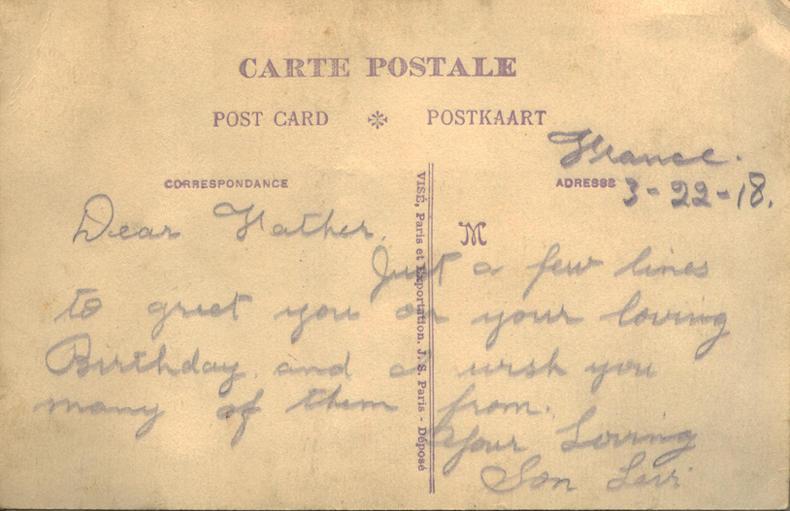 CARTE POSTALE
POST CARD ✻ POSTKAART
France.
CORRESPONDANCE
ADRESSE 3-22-18.
Dear Father,
M
Just a few lines
to greet you on your loving
Birthday and a wish you
many of them from.
Your Loving
Son Levi
VISÉ, Paris et Exportation. J. S. Paris - Déposé